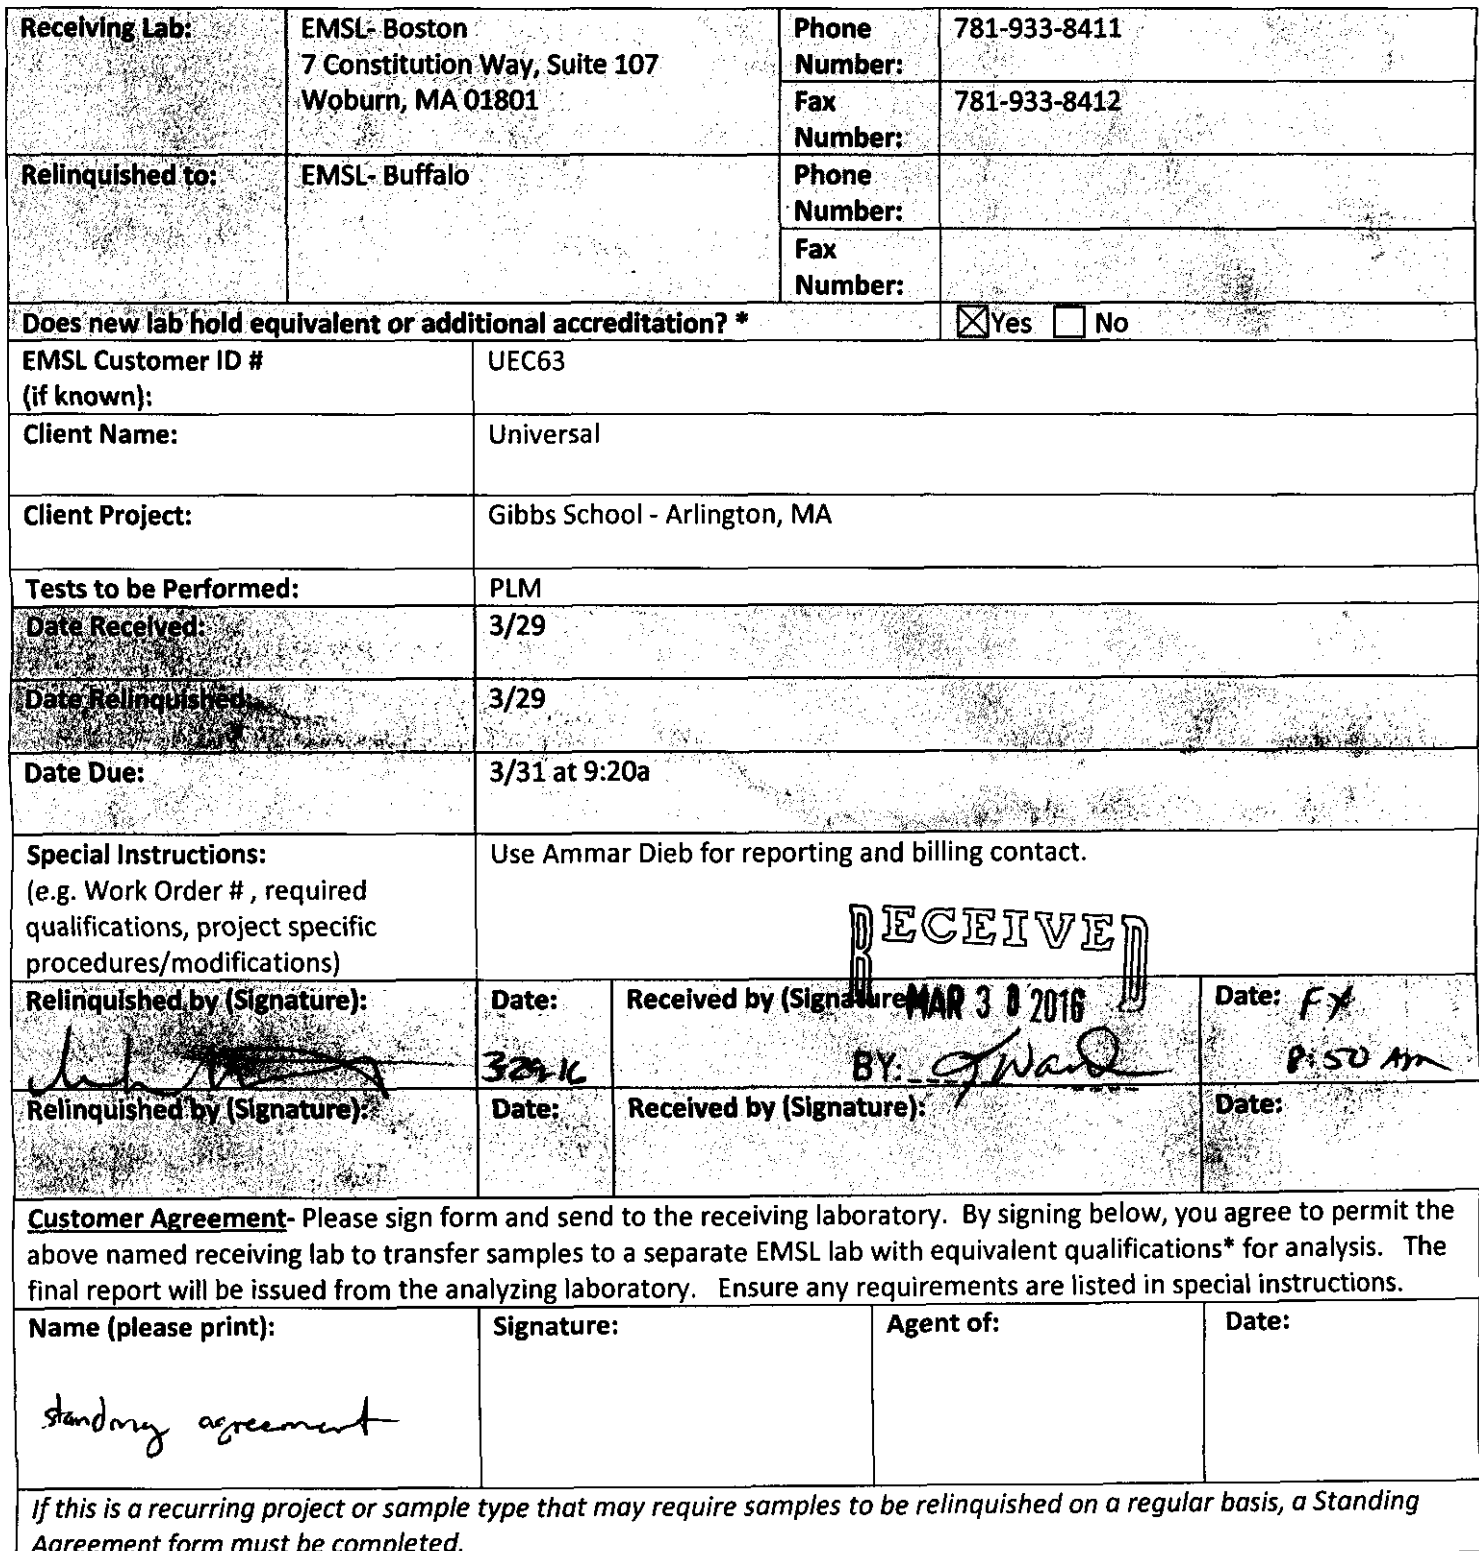 Receiving Lab: EMSL- Boston Phone 781-933-8411
7 Constitution Way, Suite 107 Number:
Woburn, MA 01801 Fax 781-933-8412
Number:
Relinquished to: EMSL- Buffalo Phone
Number:
Fax
Number:
Does new lab hold equivalent or additional accreditation? * Yes No
EMSL Customer ID # UEC63
(if known):
Client Name: Universal
Client Project: Gibbs School - Arlington, MA
Tests to be Performed: PLM
Date Received: 3/29
Date Relinquished: 3/29
Date Due: 3/31 at 9:20a
Special Instructions: Use Ammar Dieb for reporting and billing contact.
(e.g. Work Order # , required
qualifications, project specific
procedures/modifications)
RECEIVED
Relinquished by (Signature): Date: Received by (Signature MAR 30 2016 Date: FX
3-29-16 BY: JWard 8:50 Am
Relinquished by (Signature): Date: Received by (Signature): Date:
Customer Agreement- Please sign form and send to the receiving laboratory. By signing below, you agree to permit the
above named receiving lab to transfer samples to a separate EMSL lab with equivalent qualifications* for analysis. The
final report will be issued from the analyzing laboratory. Ensure any requirements are listed in special instructions.
Name (please print): Signature: Agent of: Date:
standing agreement
If this is a recurring project or sample type that may require samples to be relinquished on a regular basis, a Standing
Agreement form must be completed.